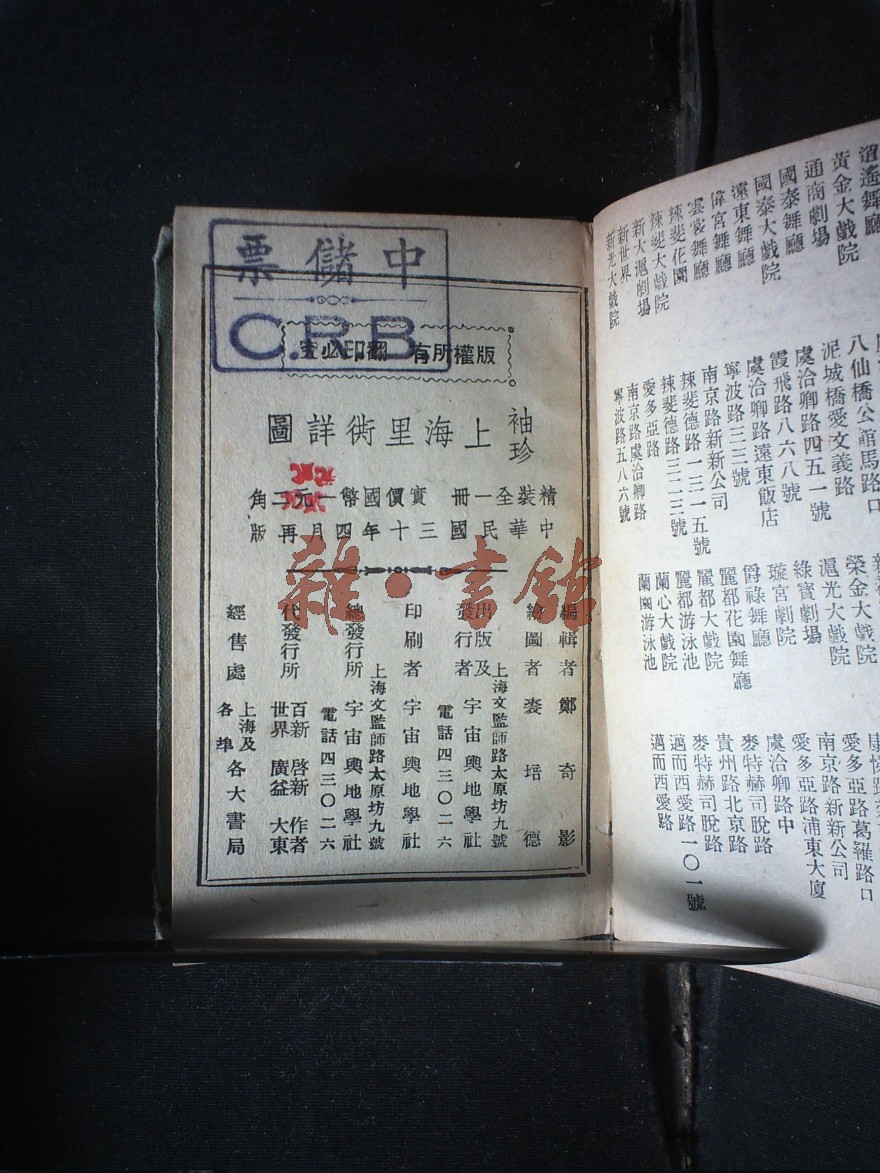 中儲票
C.R.B
版權所有 翻印必究
袖珍上海里衖詳圖
精裝全一冊 實價國幣一元二角
中華民國三十年四月再版
編輯者 鄭奇影
繪圖者 裘培德
出版及發行者 宇宙輿地學社
上海文監師路太原坊九號
電話四三〇二六
印刷者 宇宙輿地學社
總發行所 宇宙輿地學社
上海文監師路太原坊九號
電話四三〇二六
代發行所 百新 啓新 作者
世界 廣益 大東
經售處 上海及各埠各大書局
雜·書館
逍遙舞廳
黃金大戲院
通商劇場
國泰舞廳
國泰大戲院
遠東舞廳
偉宮舞廳
雲裳舞廳
辣斐花園
辣斐大戲院
新大滬劇場
新世界
新光大戲院
八仙橋公館馬路口
泥城橋愛文義路
虞洽卿路四五一號
霞飛路八六八號
虞洽卿路遠東飯店
寧波路三三號
南京路新新公司
辣斐德路一三一五號
辣斐德路三二三號
愛多亞路
南京路虞洽卿路
寧波路五八六號
榮金大戲院
滬光大戲院
綠寶劇場
璇宮劇院
爵祿舞廳
麗都花園舞廳
麗都大戲院
麗都游泳池
蘭心大戲院
蘭園游泳池
愛多亞路葛羅路口
南京路新新公司
愛多亞路浦東大廈
虞洽卿路中
麥特赫司脫路
貴州路北京路
麥特赫司脫路
邁而西愛路
邁而西愛路一〇一號